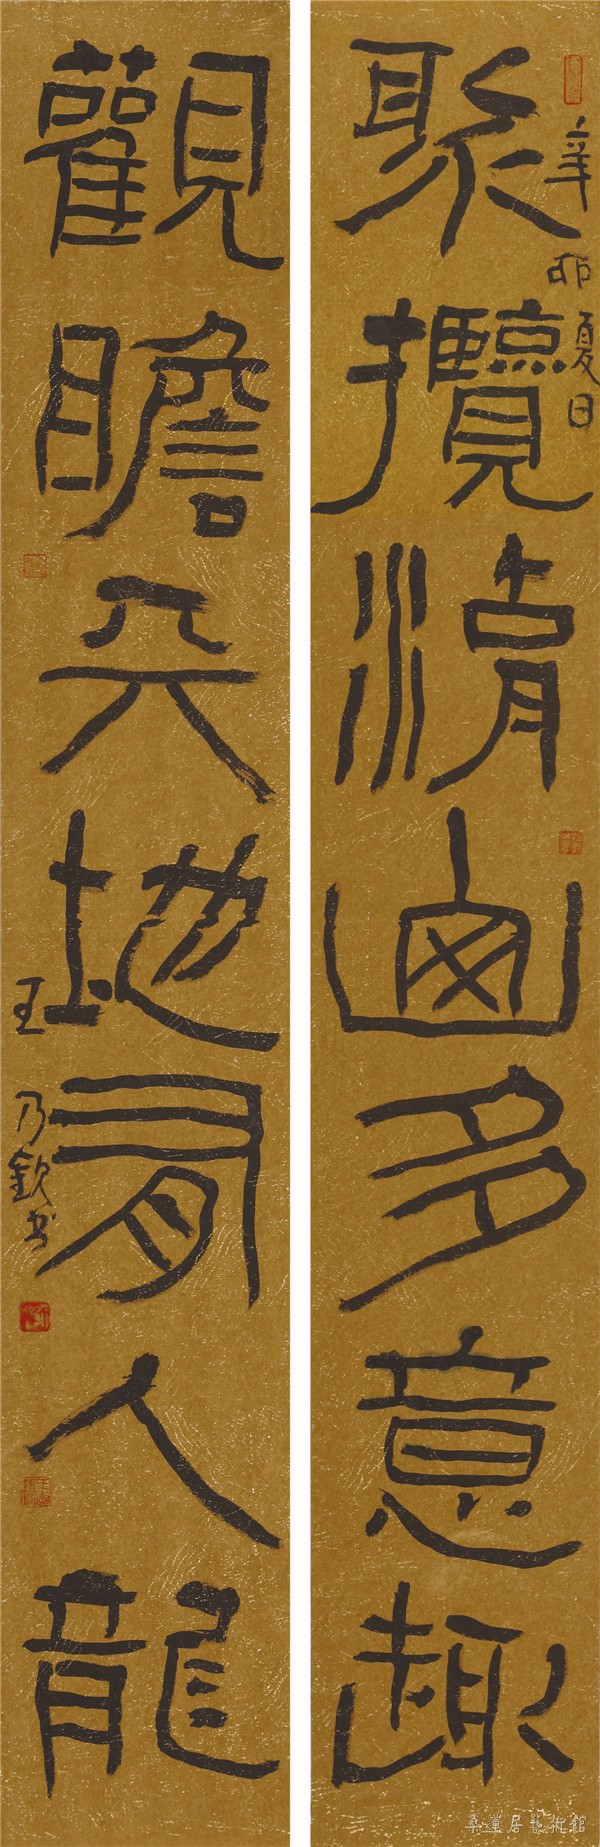 辛卯夏日
聚攬湖山多意趣
觀瞻天地有人龍
王乃欽書
桑蓮居藝術館